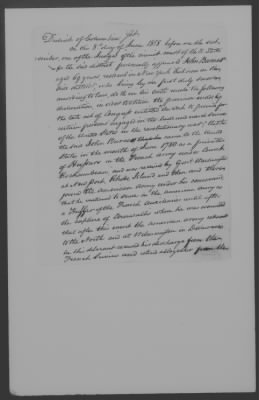 District of Columbia, Sct.
On the 8th day of June 1818 before me the sub-
scriber, one of the Judges of the circuit court of the U. States
for the said district personally appears John Barnes
aged 69 years resident in New York but now in
said district, who being by me first duly sworn
according to law, doth on his oath make the following
declaration, in order to obtain the provision made by
the late act of Congress entitled an act to provide for
certain persons engaged in the land and naval service
of the United States in the revolutionary war; that he
the said John Barnes came to the United
States in the month of June 1780 as a
of Hussars in the French army under Count
Rochambeau, and was received by Genl Washington
at New port, Rhode Island and then and there
joined the American Army under his command
that he continued to serve in the American army as
a of the French Auxiliaries until after
the capture of Cornwallis when he was wounded
that after this event the American army retreated
to the North and at Wilmington in Delaware
he the declarant received his discharge from the
French Service and